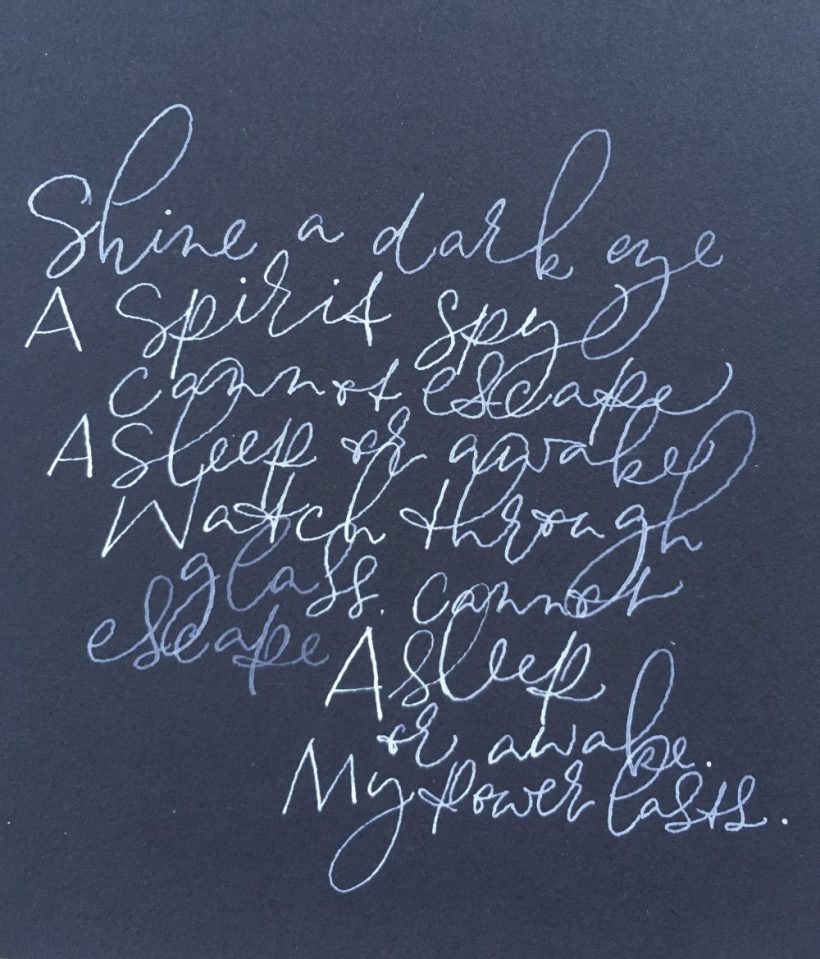 Shine a dark eye
A Spirit Spy
cannot escape
Asleep or awake
Watch through
glass. cannot
escape Asleep
or awake.
My power lasts.